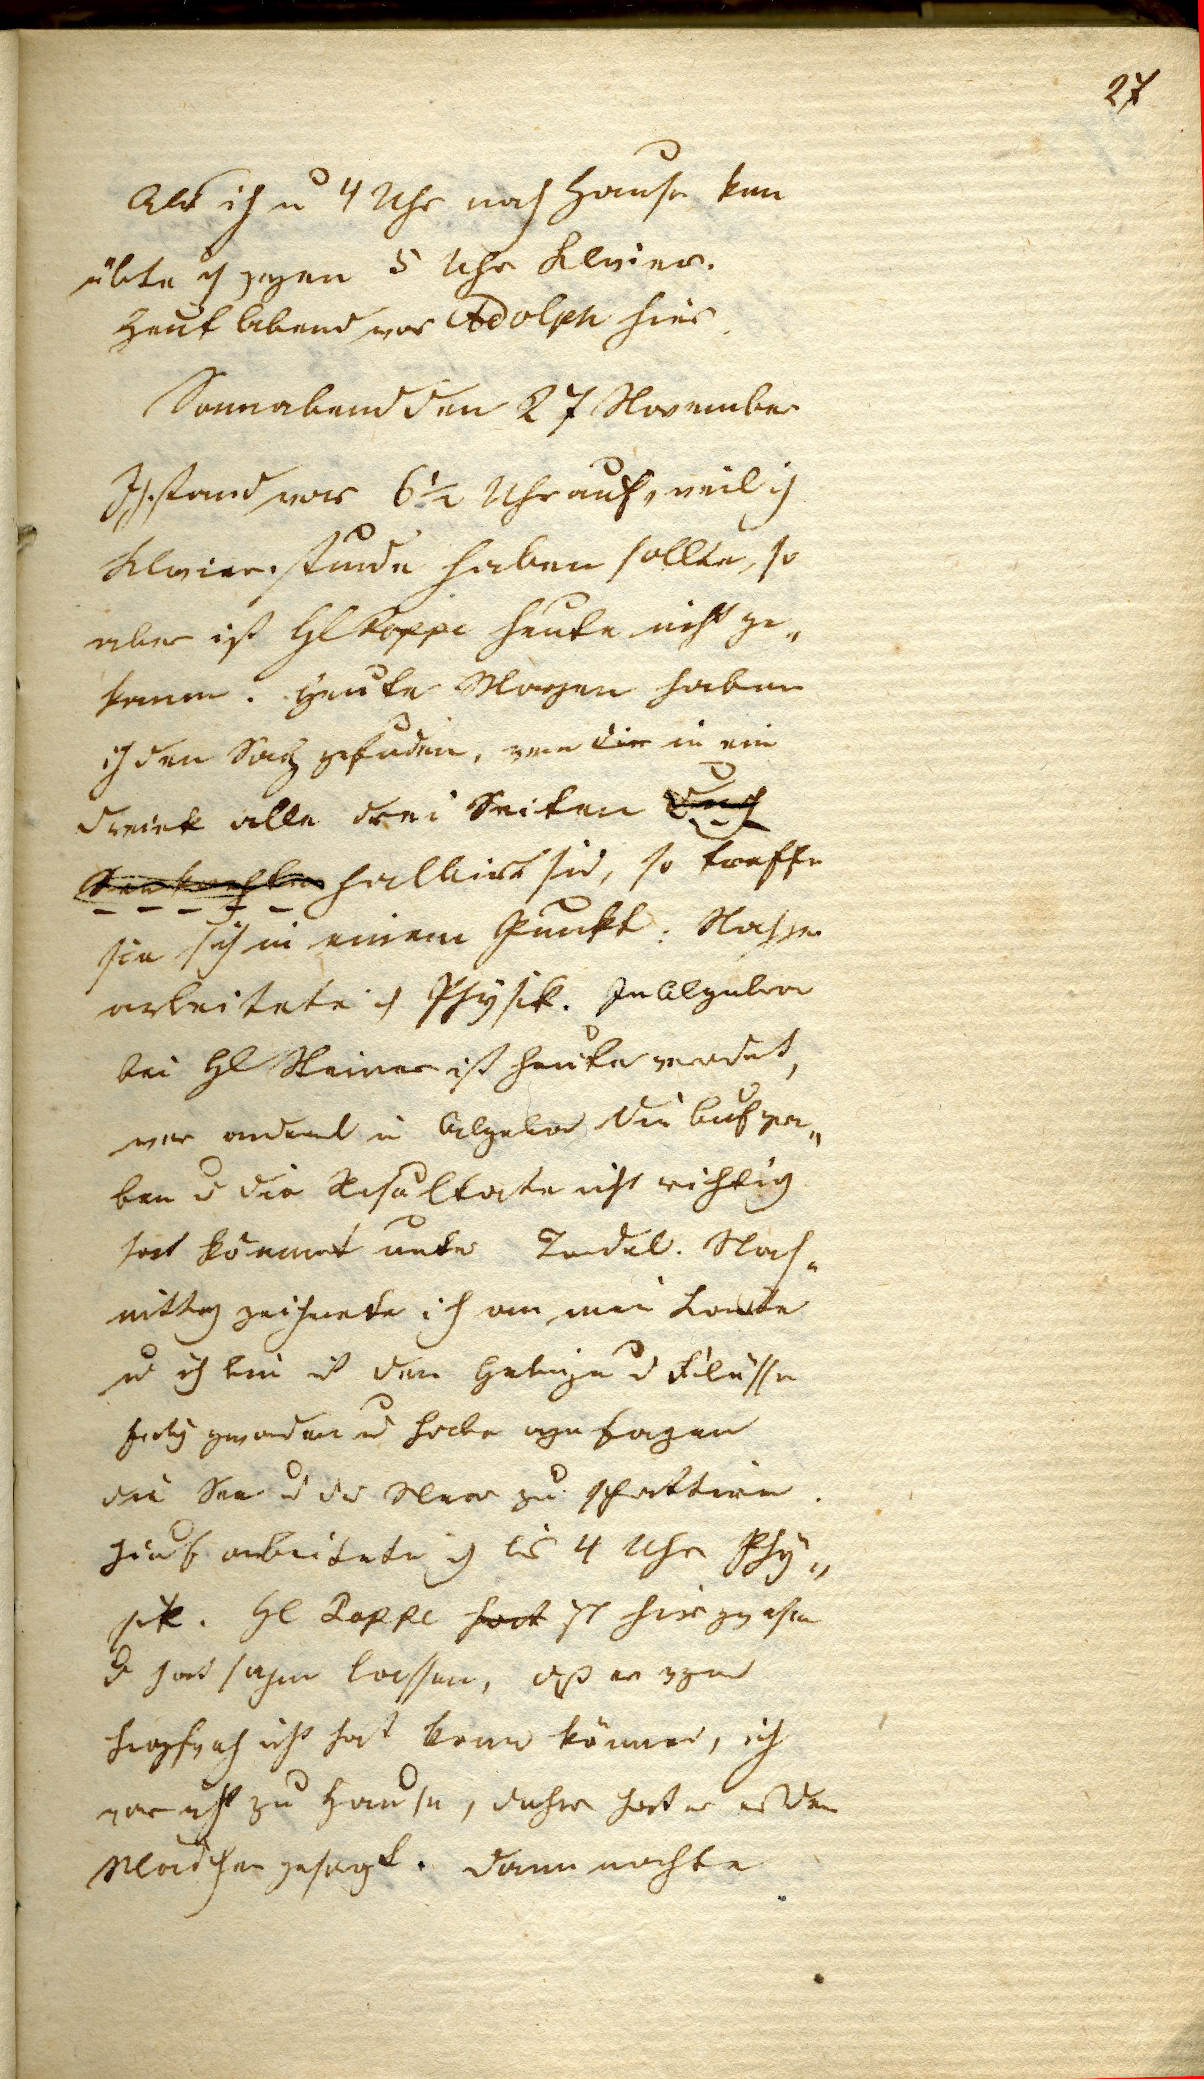 27
Als ich u 4 Uhr nach Hause kam
übte ich gegen 5 Uhr Klavier.
Heut Abend war Adolph hier.
Sonnabend den 27 November
Ich stand vor 6½ Uhr auf, weil ich
Klavierstunde haben sollte, so
aber ist HE Poppe heute nicht ge„
komm. Heute Morgen haben
ich den Satz gefunden, wenn die in ein
Dreiek alle drei Seiten durch
Senkrechten halbirt sind, so treffe
sie sich in einem Punkt. Nachher
arbeitete ich Physik. In Algebra
bei HE Steiner ist heute
wer in Algebra die Aufga„
ben u die Resultate nicht richtig
hat kömmt unter Tadel. Nach„
mittag zeichnete ich an mein Karte
u ich bin mit den Gebirge u Flüsse
fertig geworden u habe angefangen
die See u das Meer zu schattiren.
Hierauf arbeitete ich bis 4 Uhr Phy„
sik. HE Poppe hat ist hier gewesen
u hat sagen lassen, daß er wegen
nicht hat komm können, ich
war nicht zu Hause, daher hat er es den
Mädchen gesagt. Dann machte